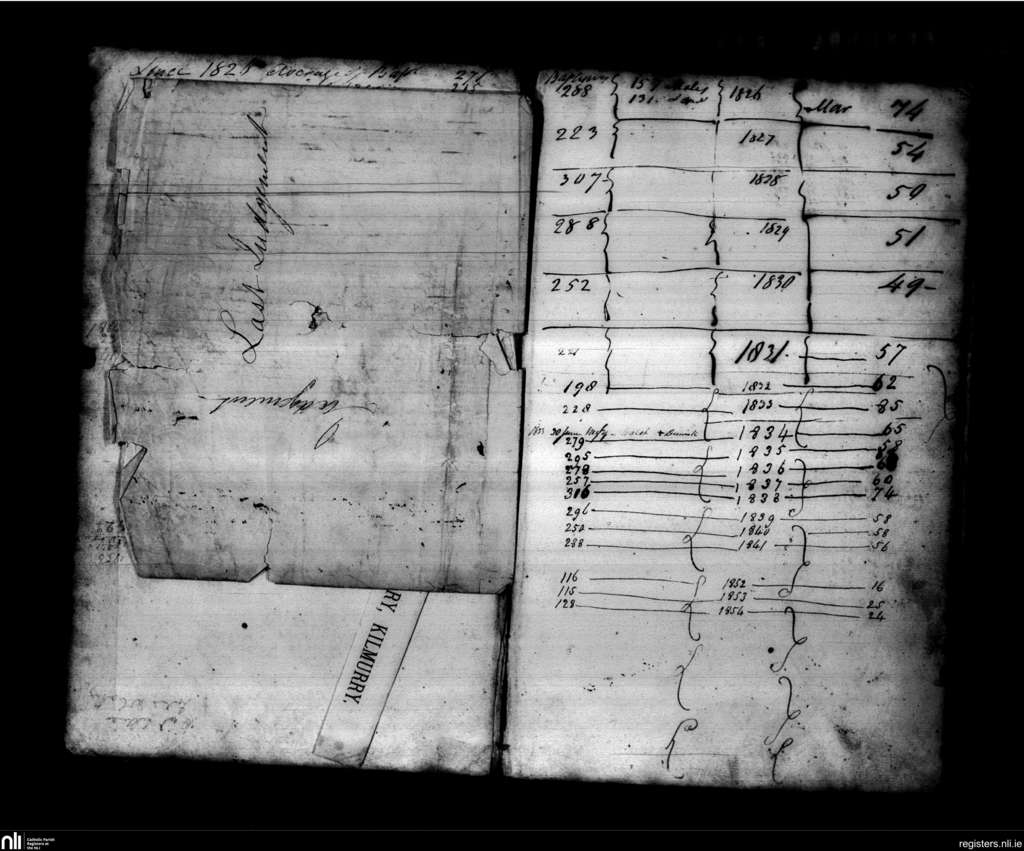 Since 1826 Average of Bap
Last Judgement
Judgement
RY, KILMURRY.
Baptisms
288 157 Males 1826 Mar 74
131
223 1827 54
307 1828 59
288 1829 51
252 1830 49-
1831 57
198 1832 62
228 1833 85
279 1834 65
295 1835 58
278 1836
257 1837 60
316 1838 74
296 1839 58
250 1840 58
288 1841 56
116 1852 16
115 1853 25
128 1854 24
nli
Catholic Parish
Registers at
the NLI
registers.nli.ie